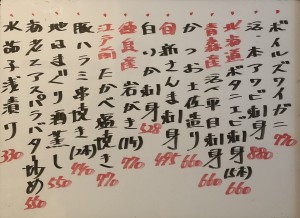 ボイルズワイガニ 770
活本アワビ刺身 880
北海道 ボタンエビ刺身(5本) 660
青森産 活ベ貝刺身 660
かつお土佐造り 660
新さんま刺身 495
白いか刺身 528
岩がき(1ケ) 770
江戸前 たかべ塩焼き 770
豚ハラミ串焼き(2本) 440
地はまぐり酒蒸し 550
海老とアスパラバター炒め 550
水茄子浅漬け 330